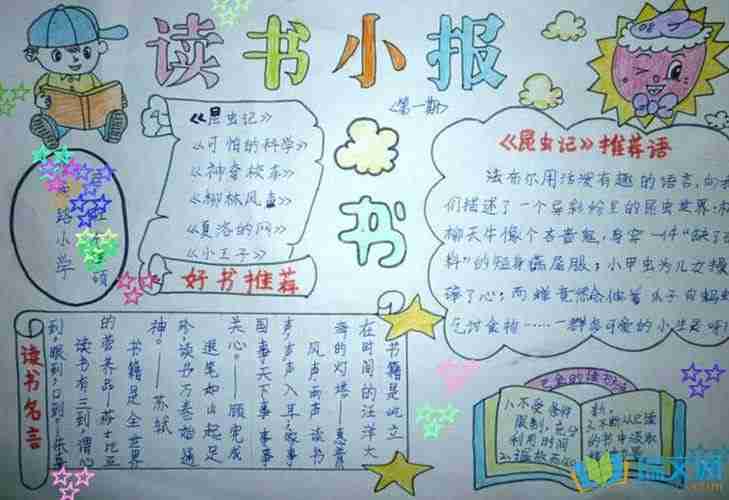 读书小报
<第一期>
《昆虫记》
《可怕的科学》
《神奇校车》
《柳林风声》
《夏洛的网》
《小王子》
好书推荐
书
路小学
《昆虫记》推荐语
法布尔用活泼有趣的语言,向我
们描述了一个异彩纷呈的昆虫世界:
柳天牛像个吝啬鬼,身穿一件“缺了
料”的短身燕尾服;小甲虫为儿女操
碎了心;
乞讨食物……一群多可爱的小生灵呀
读书名言
书籍是屹立
在时间的汪洋大
海的灯塔——
风声雨声读书
声声声入耳,家事
国事天下事事事
关心。——顾宪成
退笔如山起足
珍,读书万卷始通
神。——苏轼
书籍是全世界
的营养品——莎士比亚
读书有三到,谓心
到,眼到,口到。
小不受条件
限制,充分
利用时间
2.不断从已读
的书中读取